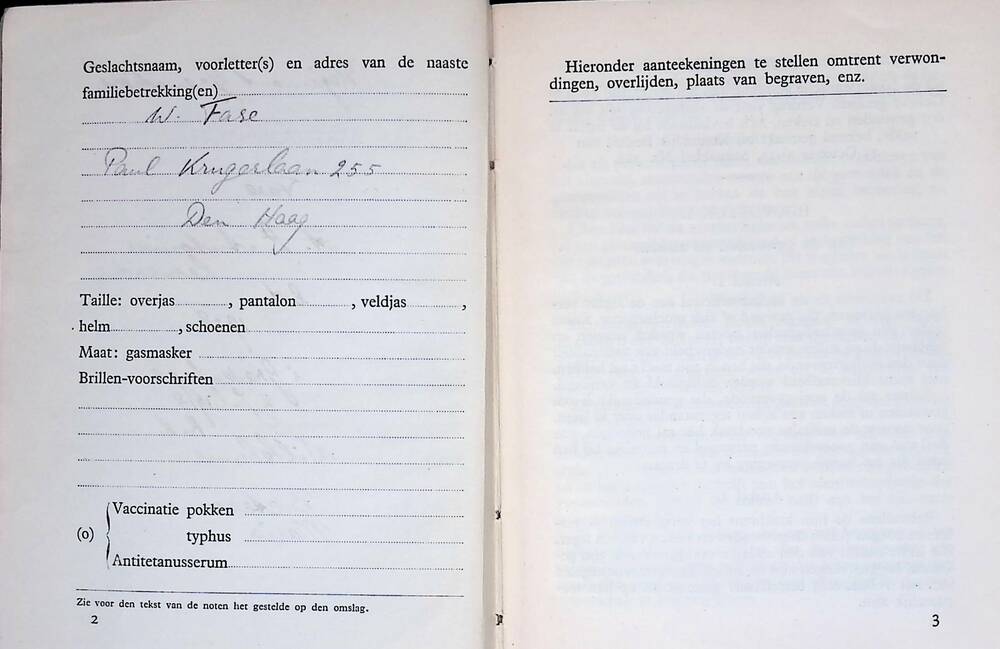 Geslachtsnaam, voorletter(s) en adres van de naaste
familiebetrekking(en)
W. Fase
Paul Krugerlaan 255
Den Haag
Taille: overjas , pantalon , veldjas ,
helm , schoenen
Maat: gasmasker
Brillen-voorschriften
(o)
Vaccinatie pokken
typhus
Antitetanusserum
Zie voor den tekst van de noten het gestelde op den omslag.
2
Hieronder aanteekeningen te stellen omtrent verwon-
dingen, overlijden, plaats van begraven, enz.
3